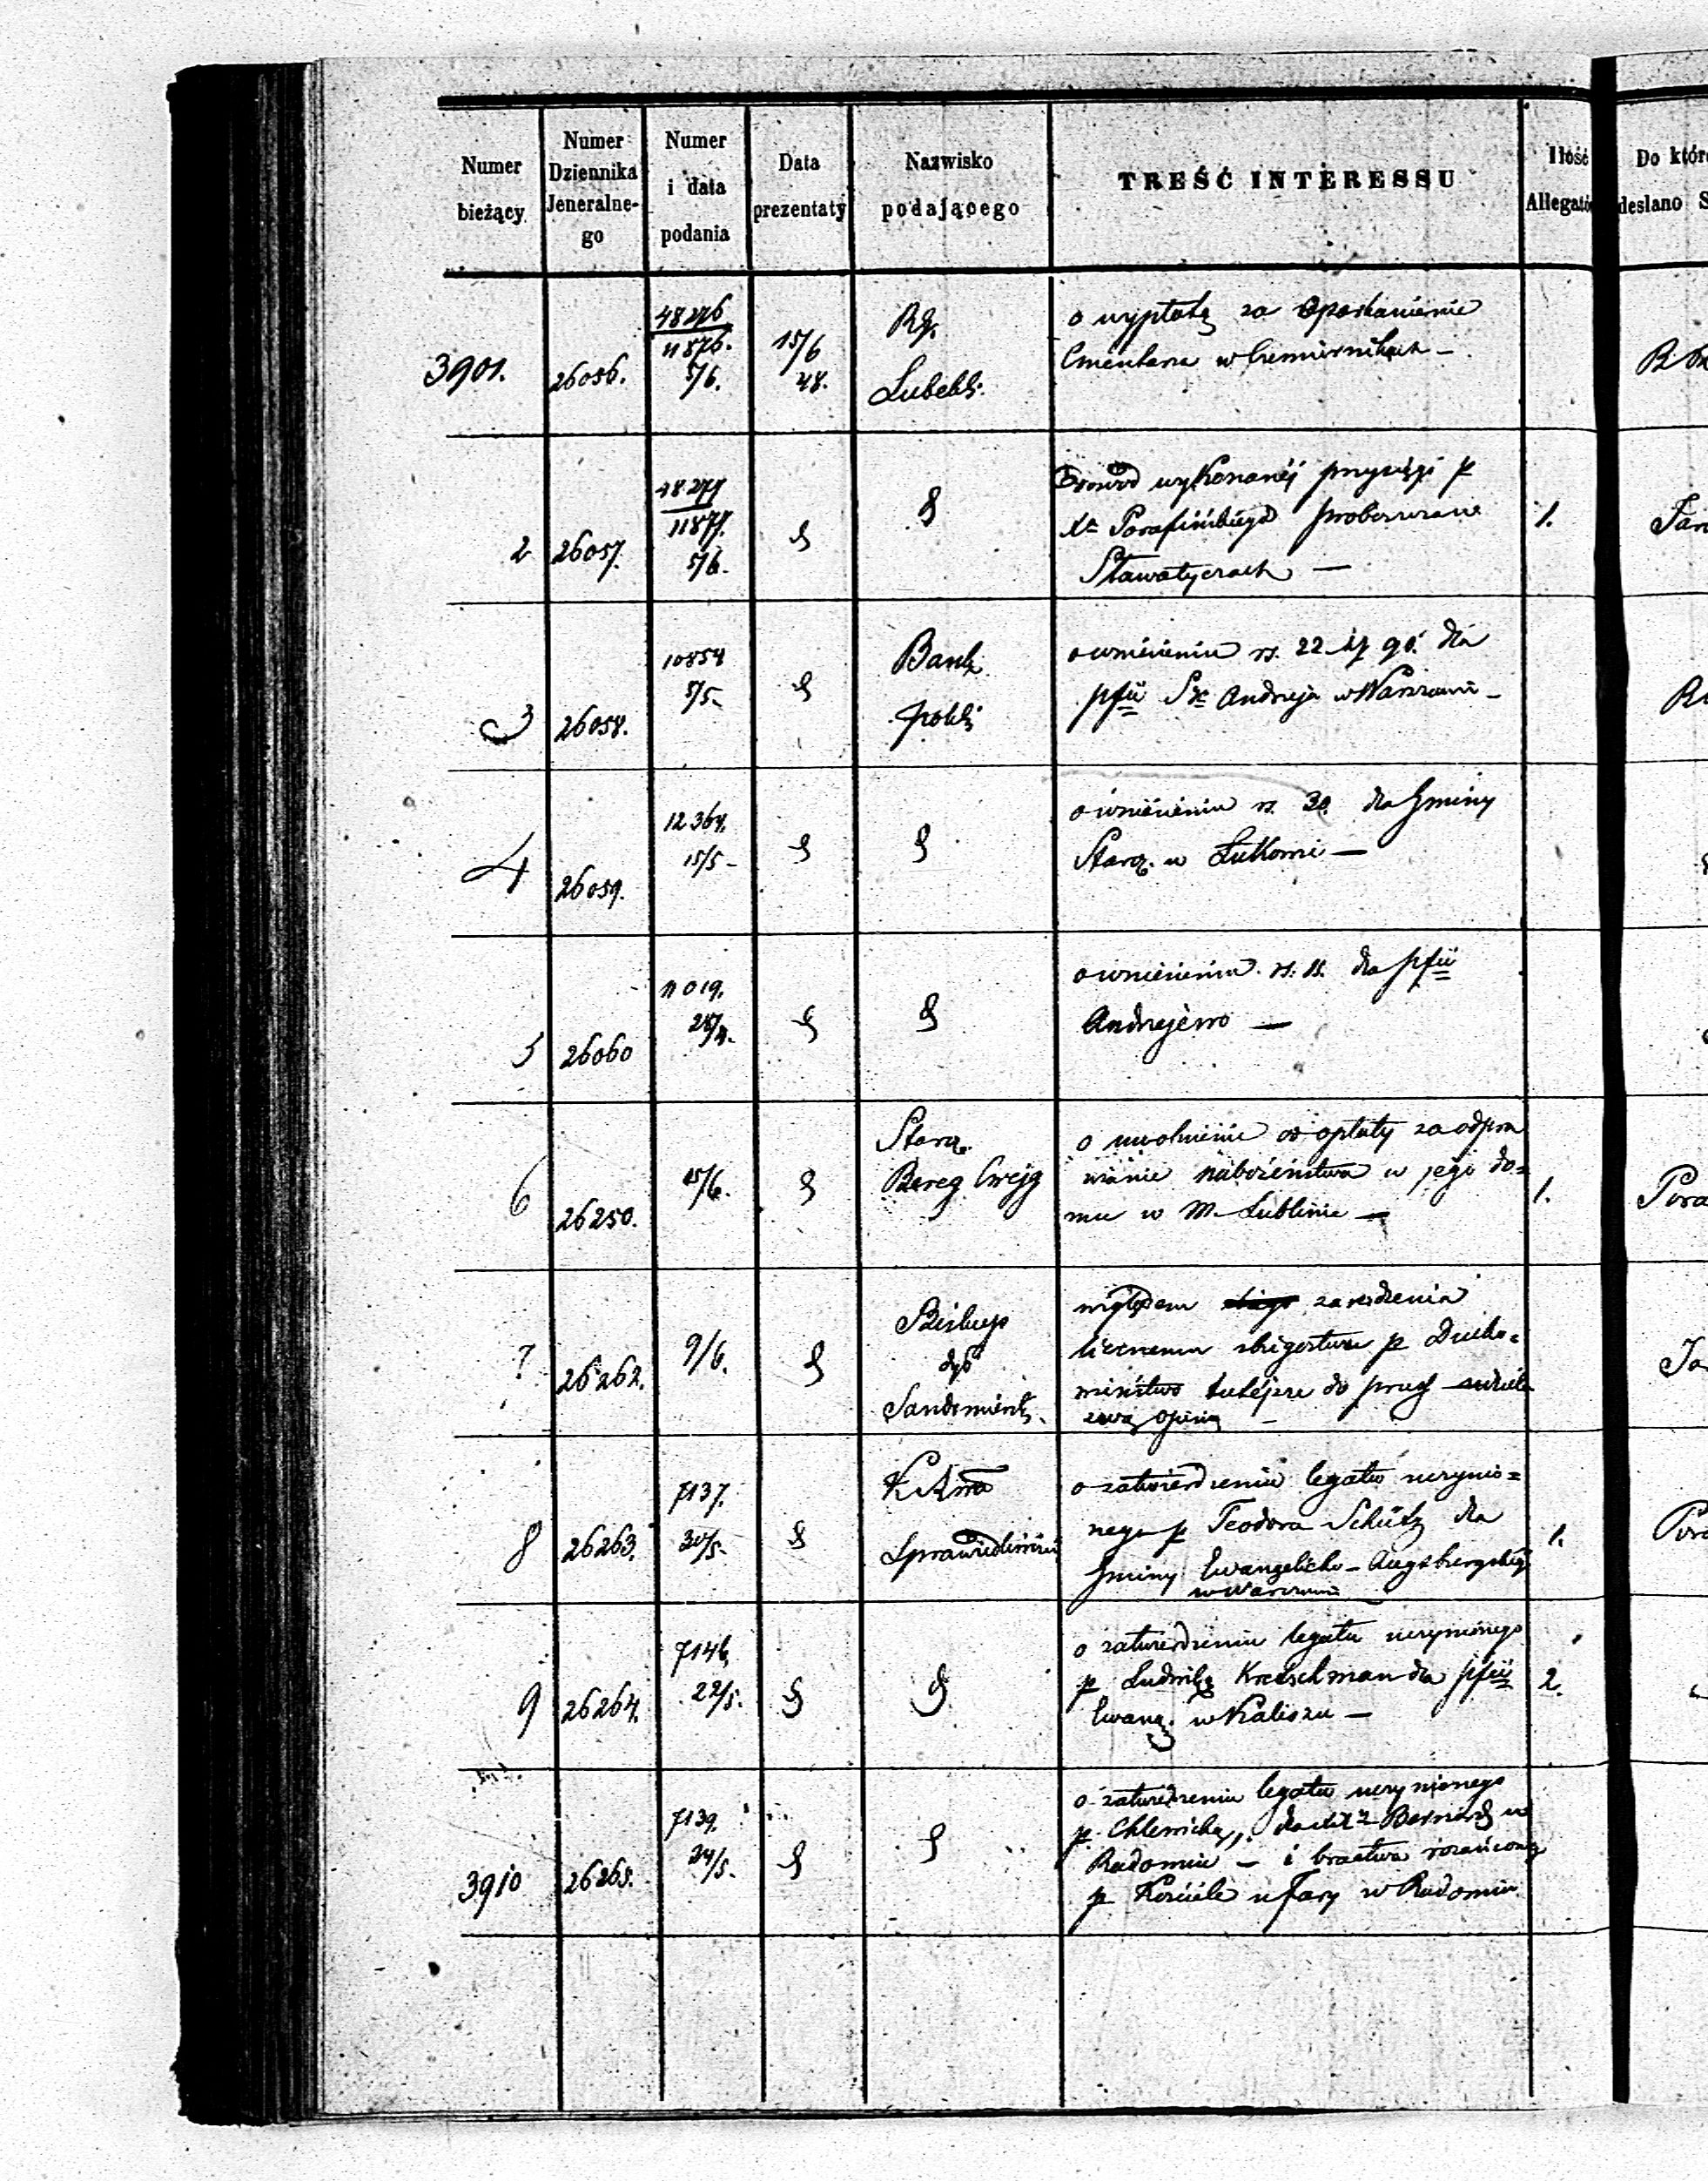 Numer bieżący
Numer Dziennika Jeneralne- go
Numer i data podania
Data prezentaty
Nazwisko podającego
TREŚĆ INTERESSU
Ilość
Do któr
deslano S
3901.
26056.
48276
11876.
5/6.
15/6
48.
Rz.
Lubelk.
o wypłatę za Oparkanienie
Cmentarza w Czemiernikach —
2
26057.
48277
11877.
5/6.
Dowód wykonanéj przysięgi p
Xa Proboszcza w
Sławatyczach —
1.
3
26058.
10854
5/5.
Bank
polsk
o wniesieniu rs. 22 k 90. dla
pfii Sgo Andrzeja w Warszawie —
4
26059.
12364.
15/5 —
o wniesieniu rs. 30. dla Gminy
Staroz. w Łukomi —
5
26060
11019.
28/4.
o wniesieniu rs. 15. dla pfii
Andrzejewo —
6
26250.
15/6.
Staroz.
Bereg Cwejg
o uwolnienie od opłaty za odpra
wianie nabożeństwa w jego do=
mu w M. Lublinie —
1.
7
26262.
9/6.
Biskup
dyo
Sandomiersk.
względem zaradzenia
licznemu zbiegostwu p Ducho=
wieństwo tutéjsze do prus
swą opinią —
8
26263.
7137.
30/5.
K. Rząa
Sprawiedliwości
o zatwierdzenie legatu uczynio=
nego p Teodora Schütz dla
Gminy Ewangelicko-Augsburgskiéj
w Warszawie
1.
9
26264.
7146.
22/5.
o zatwierdzeniu legatu uczynionego
p Ludwikę Kretschman dla pfii
Ewang. w Kaliszu —
2.
3910
26265.
7139.
24/5.
o zatwierdzeniu legatu uczynionego
p Chlewicką, dla XX Bernard. w
Radomiu — i bractwa rożańcowego
p Kościele u Fary w Radomiu